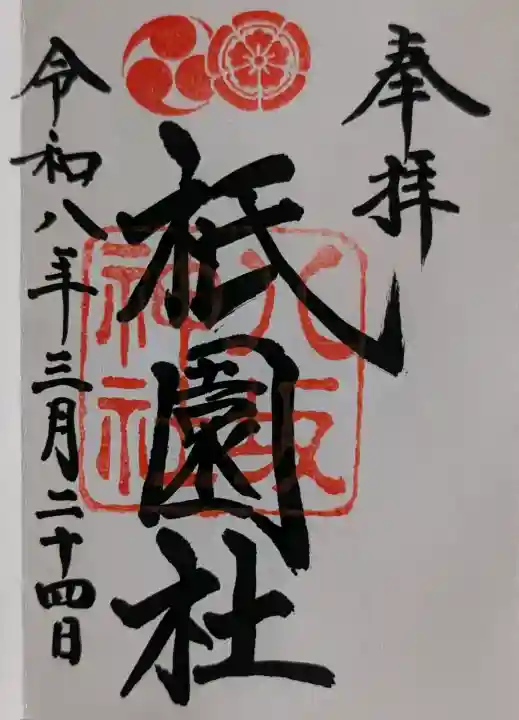 奉拝
祇園社
八坂
神社
令和八年三月二十四日